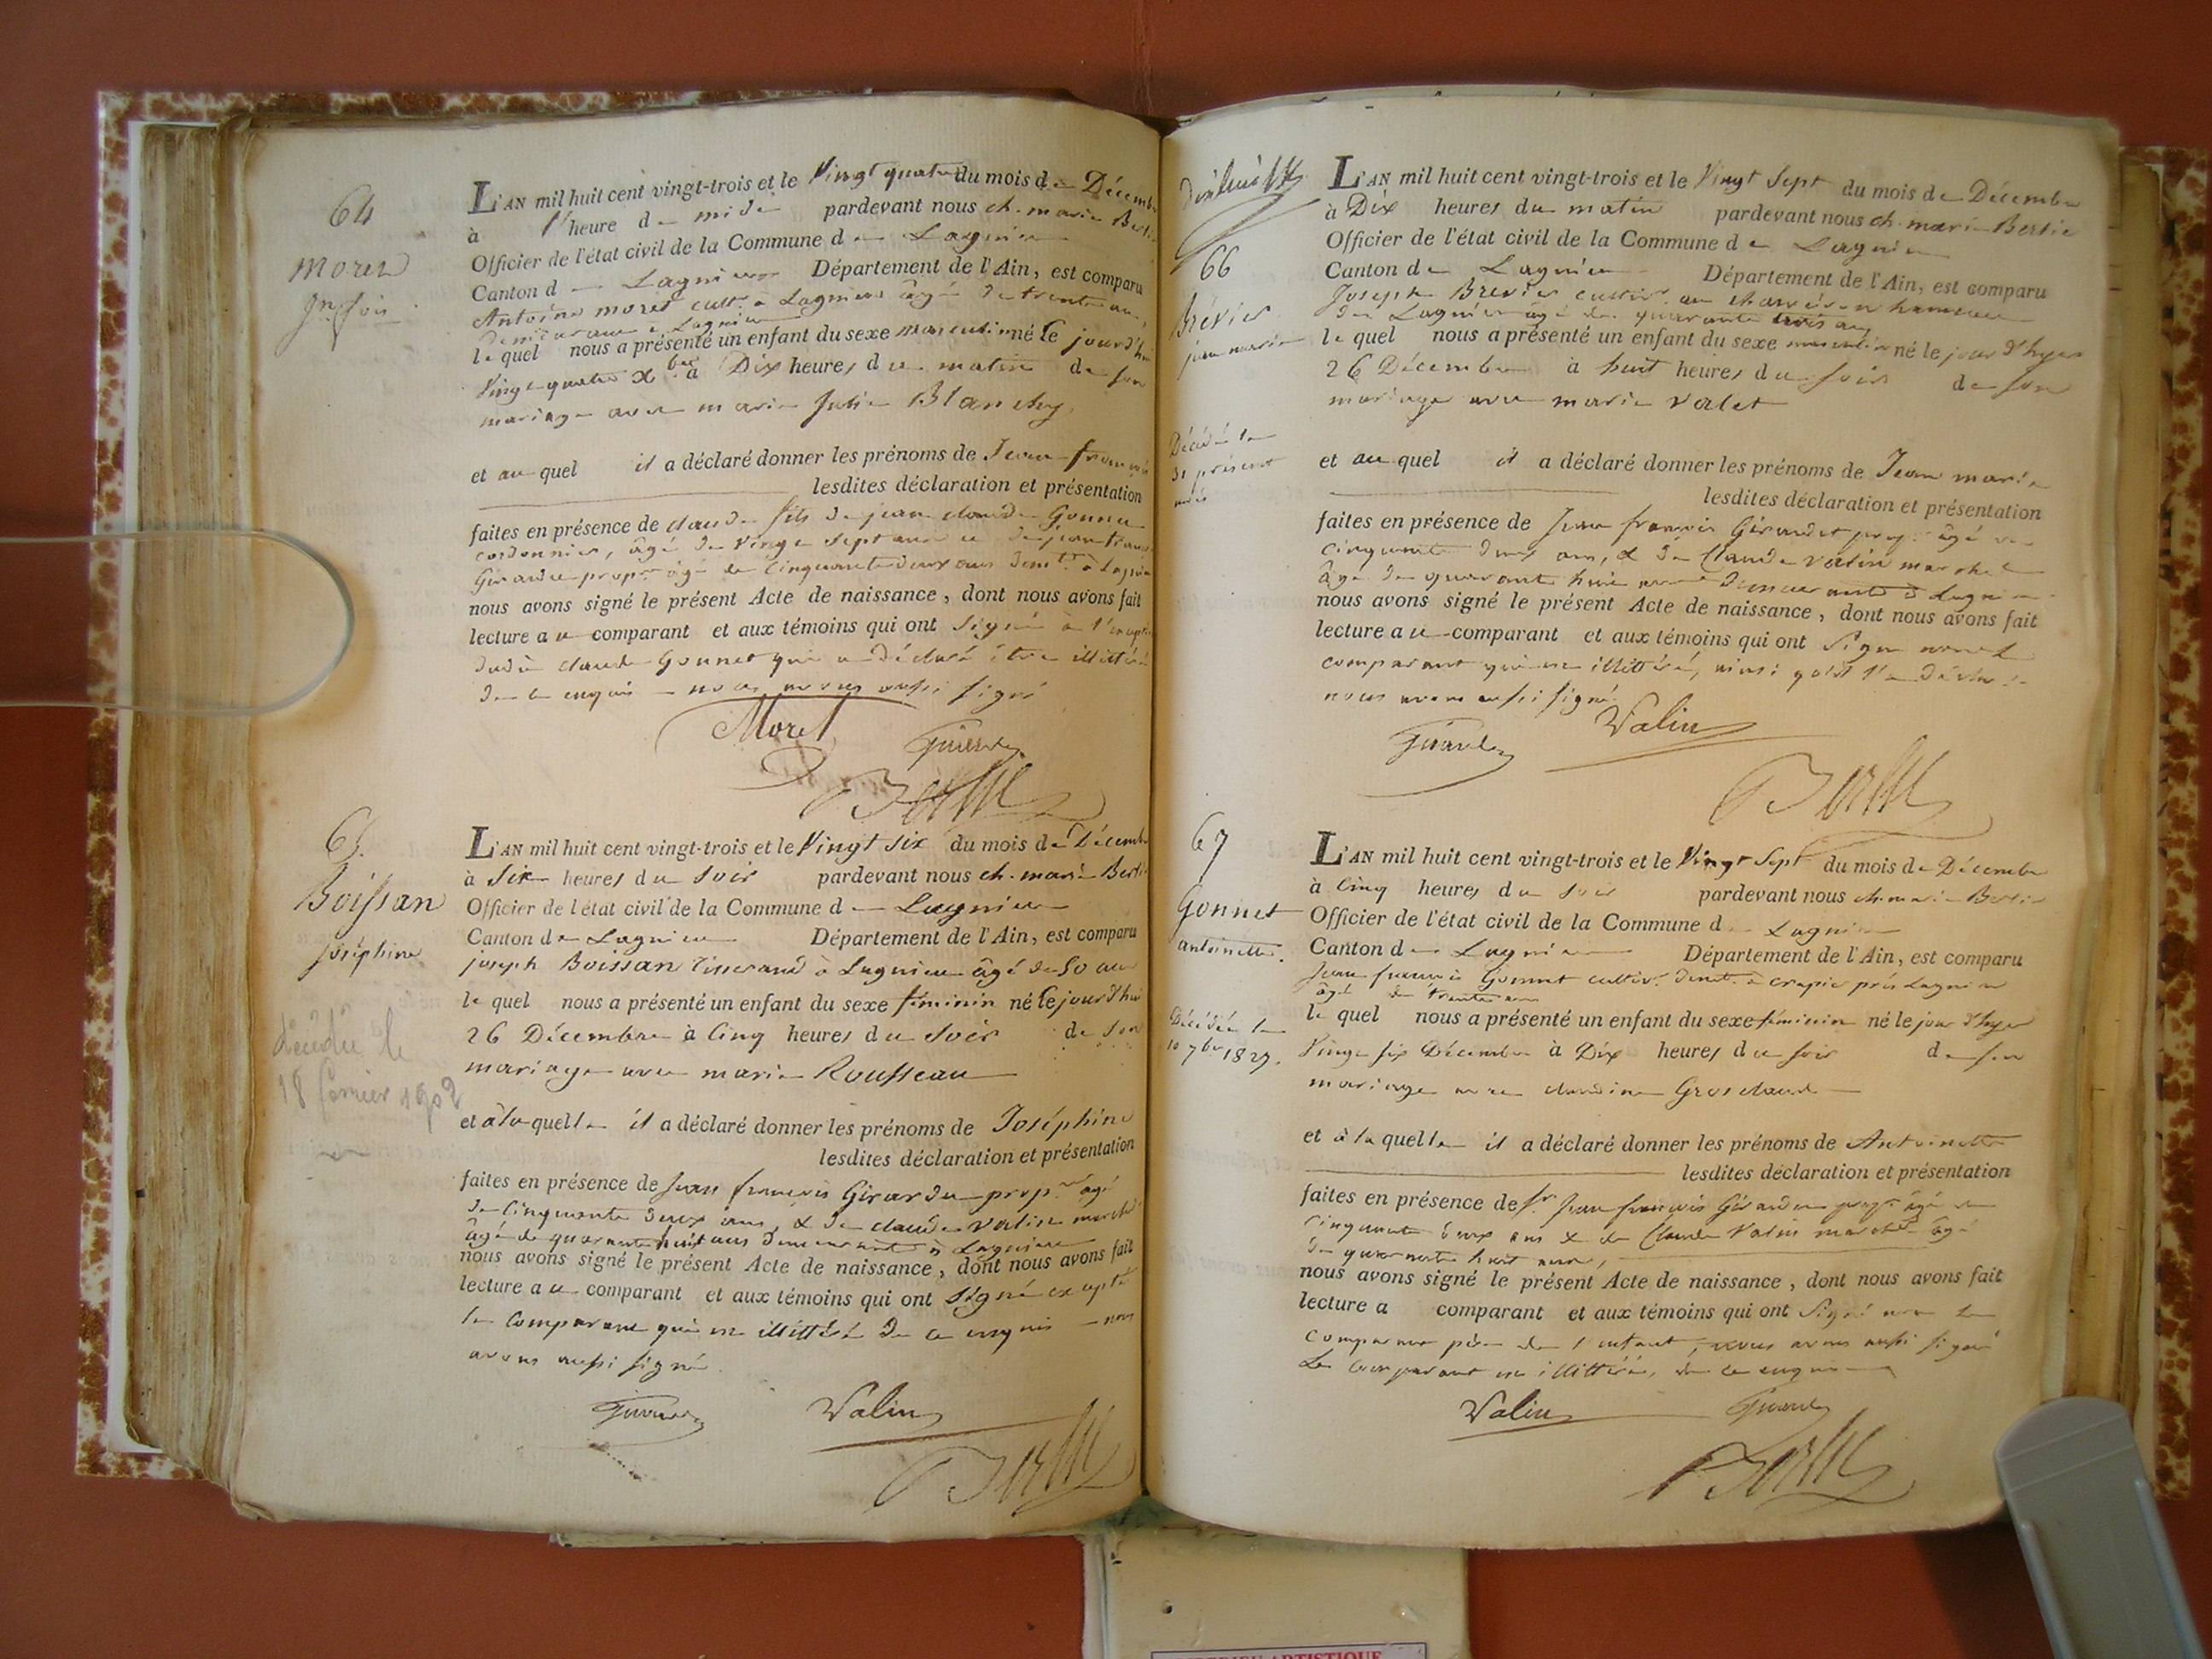 64
Moret
Jn. fois
L'AN mil huit cent vingt-trois et le Vingt quatre du mois de Décembre
à l'heure de midi pardevant nous ch. marie Berlie
Officier de l'état civil de la Commune de Lagnieu
Canton de Lagnieu Département de l'Ain, est comparu
Antoine moret cultr. a Lagnieu âgé de trente ans,
demeurant a Lagnieu
le quel nous a présenté un enfant du sexe masculin né le jourd'hui
Vingt quatre Xbre à Dix heures du matin de son
mariage avec marie Julie Blanchy
et au quel il a déclaré donner les prénoms de Jean françois
lesdites déclaration et présentation
faites en présence de claude fils de jean claude Gonnet
cordonnier, âgé de vingt sept ans et de jean francois
Girardet propre. âgé de Cinquante deux ans demt. à Lagnieu
nous avons signé le présent Acte de naissance, dont nous avons fait
lecture au comparant et aux témoins qui ont signé a l'exception
dudit claude Gonnet qui a déclaré être illittéré
de ce enquis nous avons aussi signé
Moret
65.
Boissan
joséphine
décédée le
18 février 1902
L'AN mil huit cent vingt-trois et le Vingt Six du mois de Décembre
à Six heures du soir pardevant nous ch. marie Berlie
Officier de l'état civil de la Commune de Lagnieu
Canton de Lagnieu Département de l'Ain, est comparu
joseph Boissan tisserand à Lagnieu âgé de 50 ans
le quel nous a présenté un enfant du sexe féminin né le jourd'hui
26 Décembre à Cinq heures du soir de son
mariage avec marie Rousseau
et à la quelle il a déclaré donner les prénoms de Joséphine
lesdites déclaration et présentation
faites en présence de Jean françois Girardet propre. âgé
de Cinquante deux ans, & de claude Valin marchd.
âgé de quarante huit ans demeurant à Lagnieu
nous avons signé le présent Acte de naissance, dont nous avons fait
lecture au comparant et aux témoins qui ont signé excepté
le Comparant qui est illittéré de ce enquis nous
avons aussi signé.
Valin
66
Brévier
jean marie
Décédé le
31 présent
mois
L'AN mil huit cent vingt-trois et le Vingt Sept du mois de Décembre
à Dix heures du matin pardevant nous ch. marie Berlie
Officier de l'état civil de la Commune de Lagnieu
Canton de Lagnieu Département de l'Ain, est comparu
Joseph Brevier cultivr. au hameau
de Lagnieu âgé de quarante trois ans
le quel nous a présenté un enfant du sexe masculin né le jour d'hyer
26 Décembre à huit heures du soir de son
mariage avec marie Valet
et au quel il a déclaré donner les prénoms de Jean marie
lesdites déclaration et présentation
faites en présence de Jean françois Girardet propr. âgé de
Cinquante deux ans, & de Claude Valin marchd.
âgé de quarante huit ans demeurants à Lagnieu
nous avons signé le présent Acte de naissance, dont nous avons fait
lecture au comparant et aux témoins qui ont signé non le
comparant qui est illittéré, ainsi qu'il l'a déclaré
nous avons aussi signé
Valin
67
Gonnet
antoinette.
Décédée le
10 7bre 1827.
L'AN mil huit cent vingt-trois et le Vingt Sept du mois de Décembre
à Cinq heures du soir pardevant nous ch. marie Berlie
Officier de l'état civil de la Commune d Lagnieu
Canton de Lagnieu Département de l'Ain, est comparu
Jean françois Gonnet cultivr. demt. à crapié près Lagnieu
âgé de trente ans
le quel nous a présenté un enfant du sexe féminin né le jour d'hyer
Vingt six Décembre à Dix heures du soir de son
mariage avec claudine Grosclaude
et à la quelle il a déclaré donner les prénoms de Antoinette
lesdites déclaration et présentation
faites en présence de Sr. Jean françois Girardet propr. âgé de
cinquante deux ans & de Claude Valin marchd. âgé
de quarante huit ans,
nous avons signé le présent Acte de naissance, dont nous avons fait
lecture a comparant et aux témoins qui ont Signé non le
comparant père de l'enfant, nous avons aussi signé
Le comparant est illittéré, de ce enquis
Valin